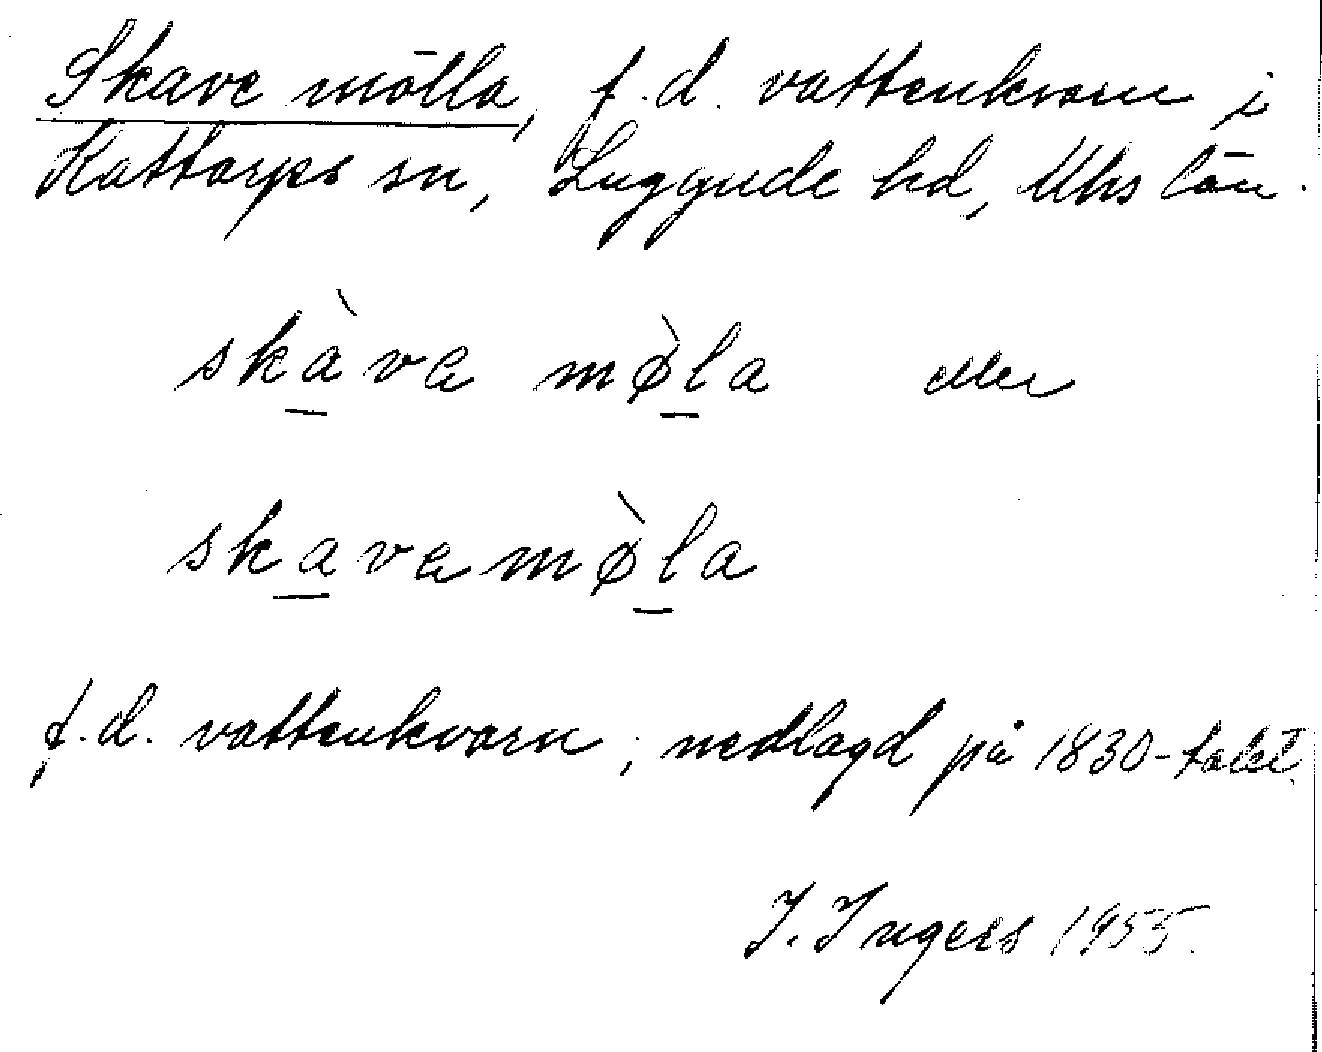 Skave mölla, f.d. vattenkvarn i
Kattarps sn, Luggude hd, Mhs län.
skàva mø̀la eller
skavamø̀la
f.d. vattenkvarn; nedlagd på 1830-talet.
I. Ingers 1955.